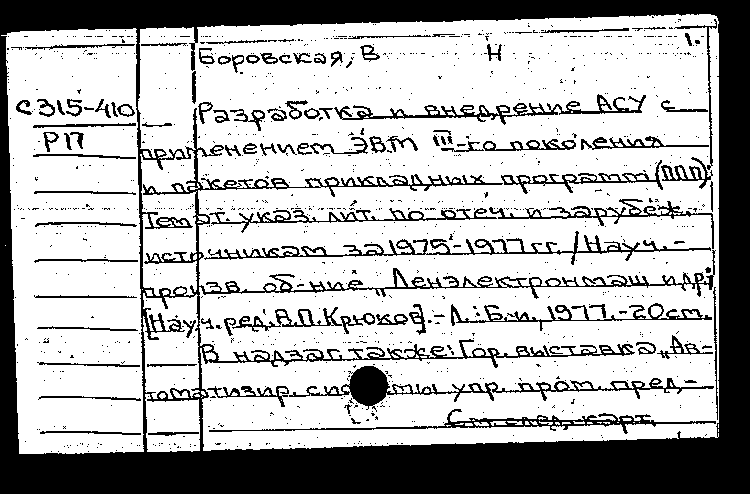 1.
Боровская, В Н
С315-410 Разработка и внедрение АСУ с
Р17 применением ЭВМ III-го поколения
и пакетов прикладных программ (ППП):
Темат. указ. лит. по отеч. и зарубеж.
источникам за 1975-1977 гг. / Науч.-
произв. об-ние „Ленэлектронмаш и др.;
[Науч. ред. В.П. Крюков]. - Л.: Б.и., 1977. - 20 см.
В надзаг. также: Гор. выставка „Ав-
томатизир. системы упр. пром. пред-
См. след. карт.